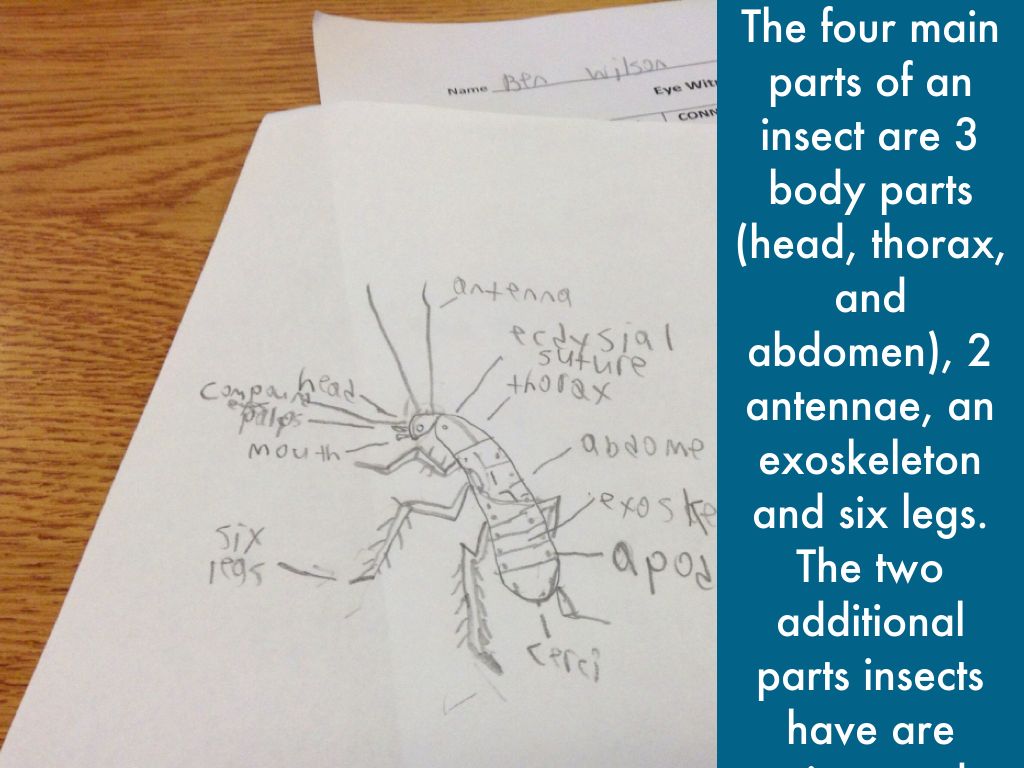 Name Ben Wilson
Eye Wit
CONN
antenna
ecdysial
suture
thorax
head
compound
palps
mouth
abdome
exoske
six
legs
apod
cerci
The four main
parts of an
insect are 3
body parts
(head, thorax,
and
abdomen), 2
antennae, an
exoskeleton
and six legs.
The two
additional
parts insects
have are